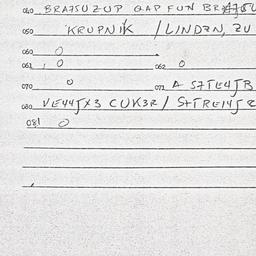 040 BRA7SUZUP GAP FUN BR
050 KRUPNIK / LINDZN, ZU
060 0
061 0 062 0
070 0 071 A S7TE4JB
080 VE44JX3 CUK3R / S+TRE14J2
081 0